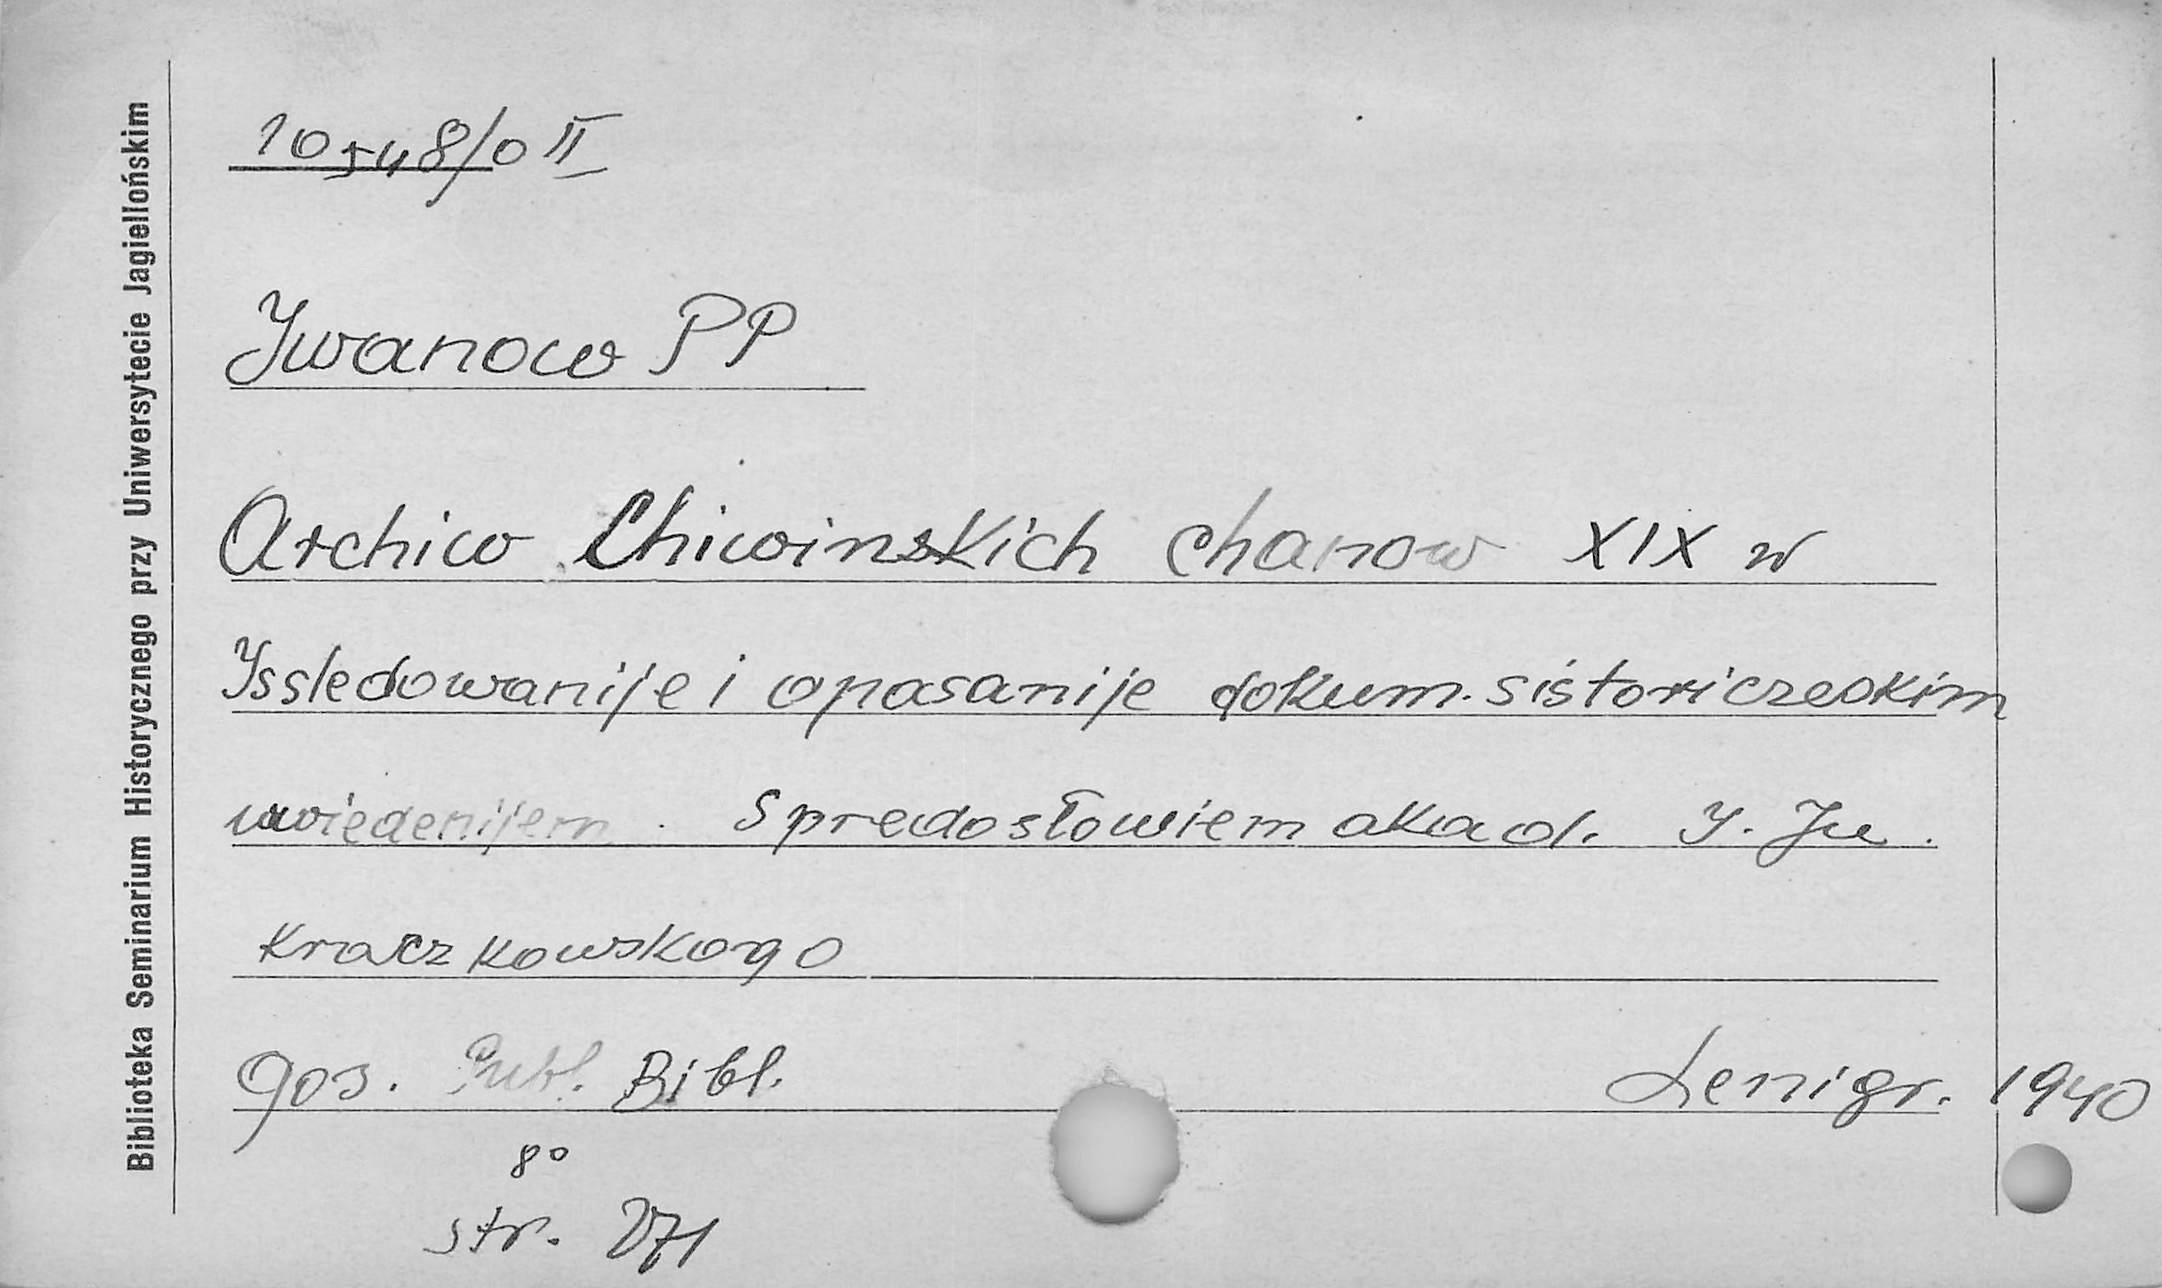 Biblioteka Seminarium Historycznego przy Uniwersytecie Jagiellońskim
10548/0 II
Iwanow PP
Archiw Chiwinskich chanow XIX w
Issledowanije i opasanije dokum. sistoriczeskim
wwiedenijem. Spredosłowiem akad. I. Ju.
Kraczkowskogo
Gos. Publ. Bibl. Lenigr. 1940
8°
str. 271